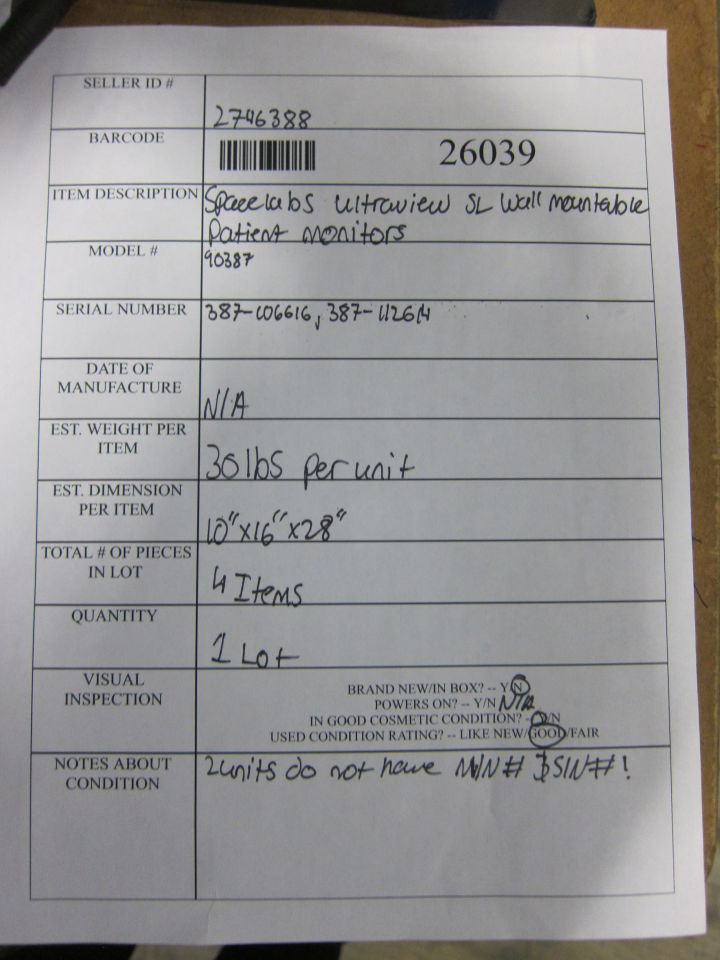 SELLER ID #
2746388
BARCODE
26039
ITEM DESCRIPTION
Spacelabs Ultraview SL Wall mountable
Patient monitors
MODEL #
90387
SERIAL NUMBER
387-106616, 387-112614
DATE OF
MANUFACTURE
N/A
EST. WEIGHT PER
ITEM
30 lbs per unit
EST. DIMENSION
PER ITEM
10" x 16" x 28"
TOTAL # OF PIECES
IN LOT
4 Items
QUANTITY
1 Lot
VISUAL
INSPECTION
BRAND NEW/IN BOX? -- Y/N
POWERS ON? -- Y/N N/A
IN GOOD COSMETIC CONDITION? -- Y/N
USED CONDITION RATING? -- LIKE NEW/GOOD/FAIR
NOTES ABOUT
CONDITION
2 units do not have M/N# S/N#!